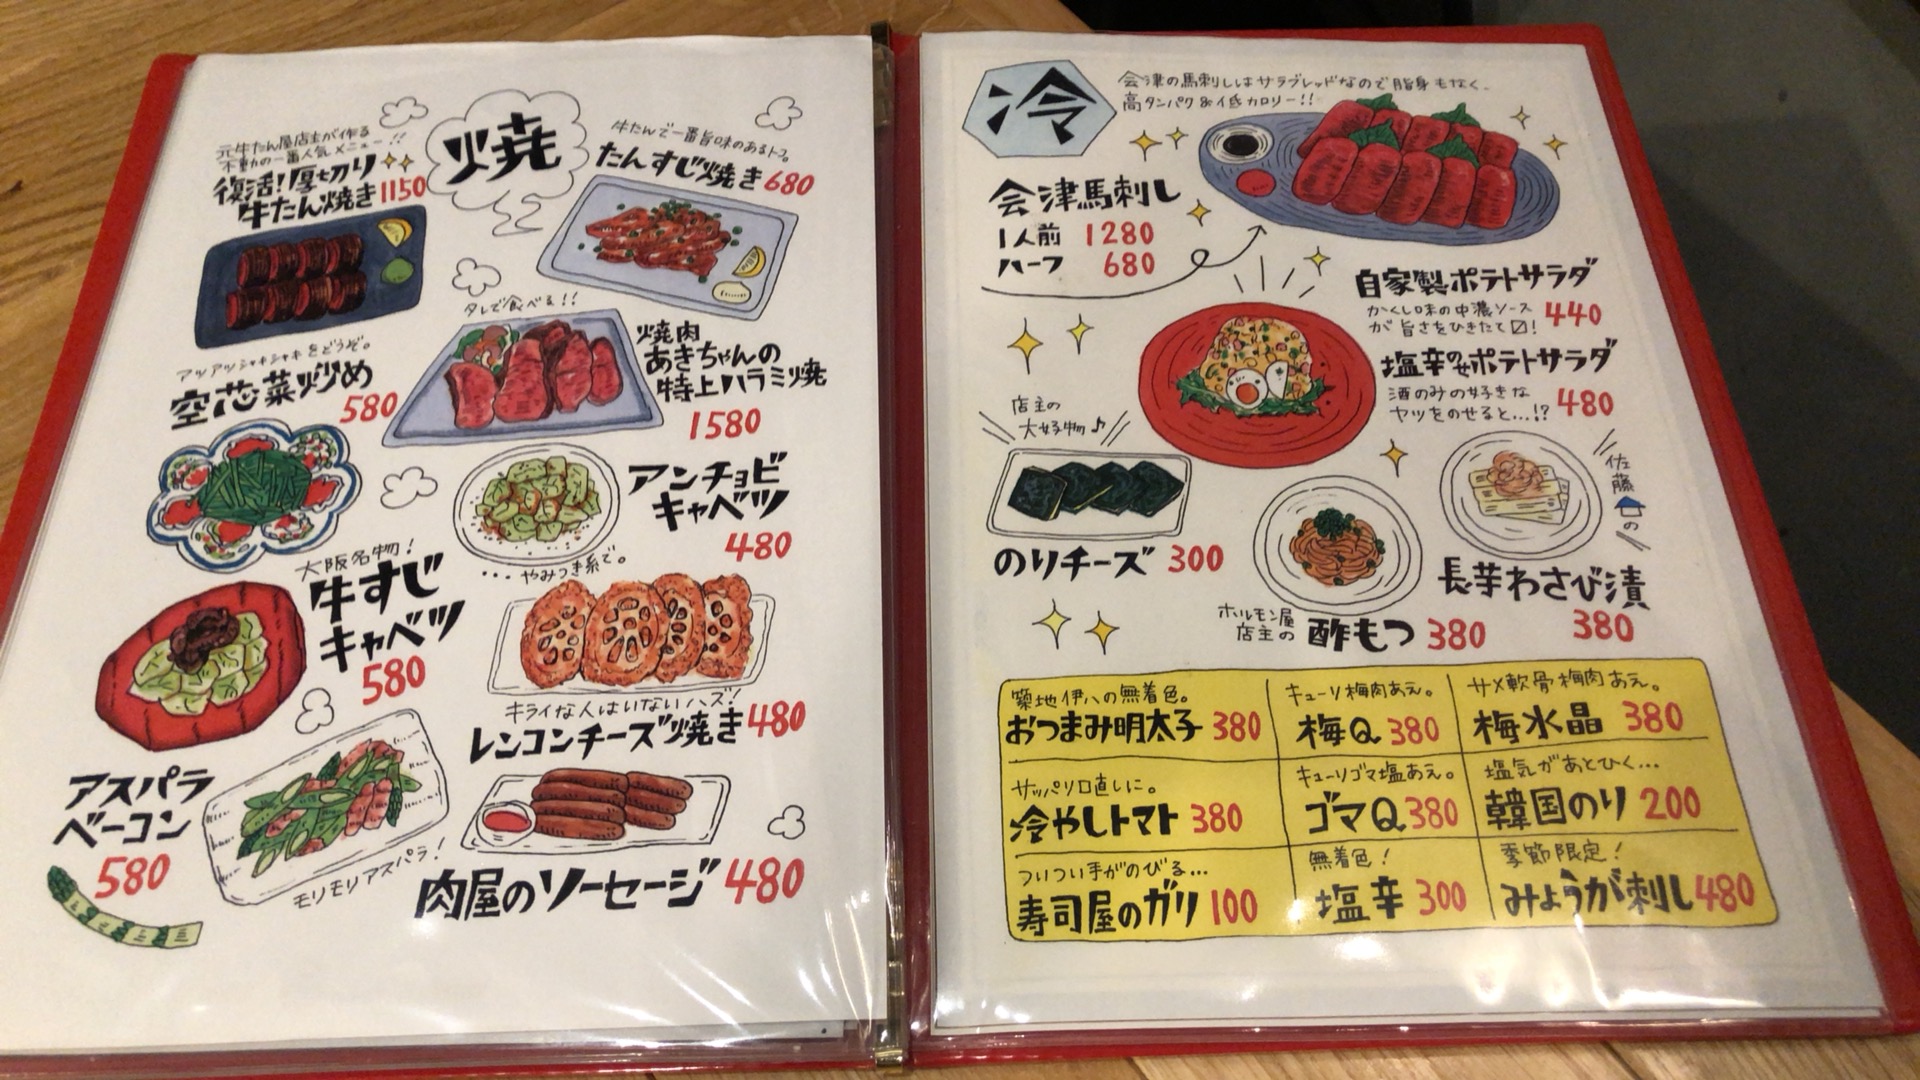 焼
元牛たん屋店主が作る
不動の一番人気メニュー!!
復活!厚切り
牛たん焼き 1150
牛たんで一番旨味のあるトコ。
たんすじ焼き 680
タレで食べる!!
焼肉
あきちゃんの
特上ハラミ焼
1580
アツアツシャキシャキをどうぞ。
空芯菜炒め
580
アンチョビ
キャベツ
480
...やみつき系で。
大阪名物!
牛すじ
キャベツ
580
キライな人はいないハズ!
レンコンチーズ焼き 480
アスパラ
ベーコン
580
モリモリアスパラ!
肉屋のソーセージ 480
冷
会津の馬刺しはサラブレッドなので脂身もなく、
高タンパク&低カロリー!!
会津馬刺し
1人前 1280
ハーフ 680
自家製ポテトサラダ
かくし味の中濃ソース
が旨さをひきたて〼! 440
塩辛のせポテトサラダ
酒のみの好きな
ヤツをのせると...!? 480
店主の
大好物♪
のりチーズ 300
ホルモン屋
店主の
酢もつ 380
佐藤
の
長芋わさび漬
380
築地伊八の無着色。
おつまみ明太子 380
キューリ梅肉あえ。
梅Q 380
サメ軟骨梅肉あえ。
梅水晶 380
サッパリ口直しに。
冷やしトマト 380
キューリゴマ塩あえ。
ゴマQ 380
塩気があとひく...
韓国のり 200
ついつい手がのびる...
寿司屋のガリ 100
無着色!
塩辛 300
季節限定!
みょうが刺し 480